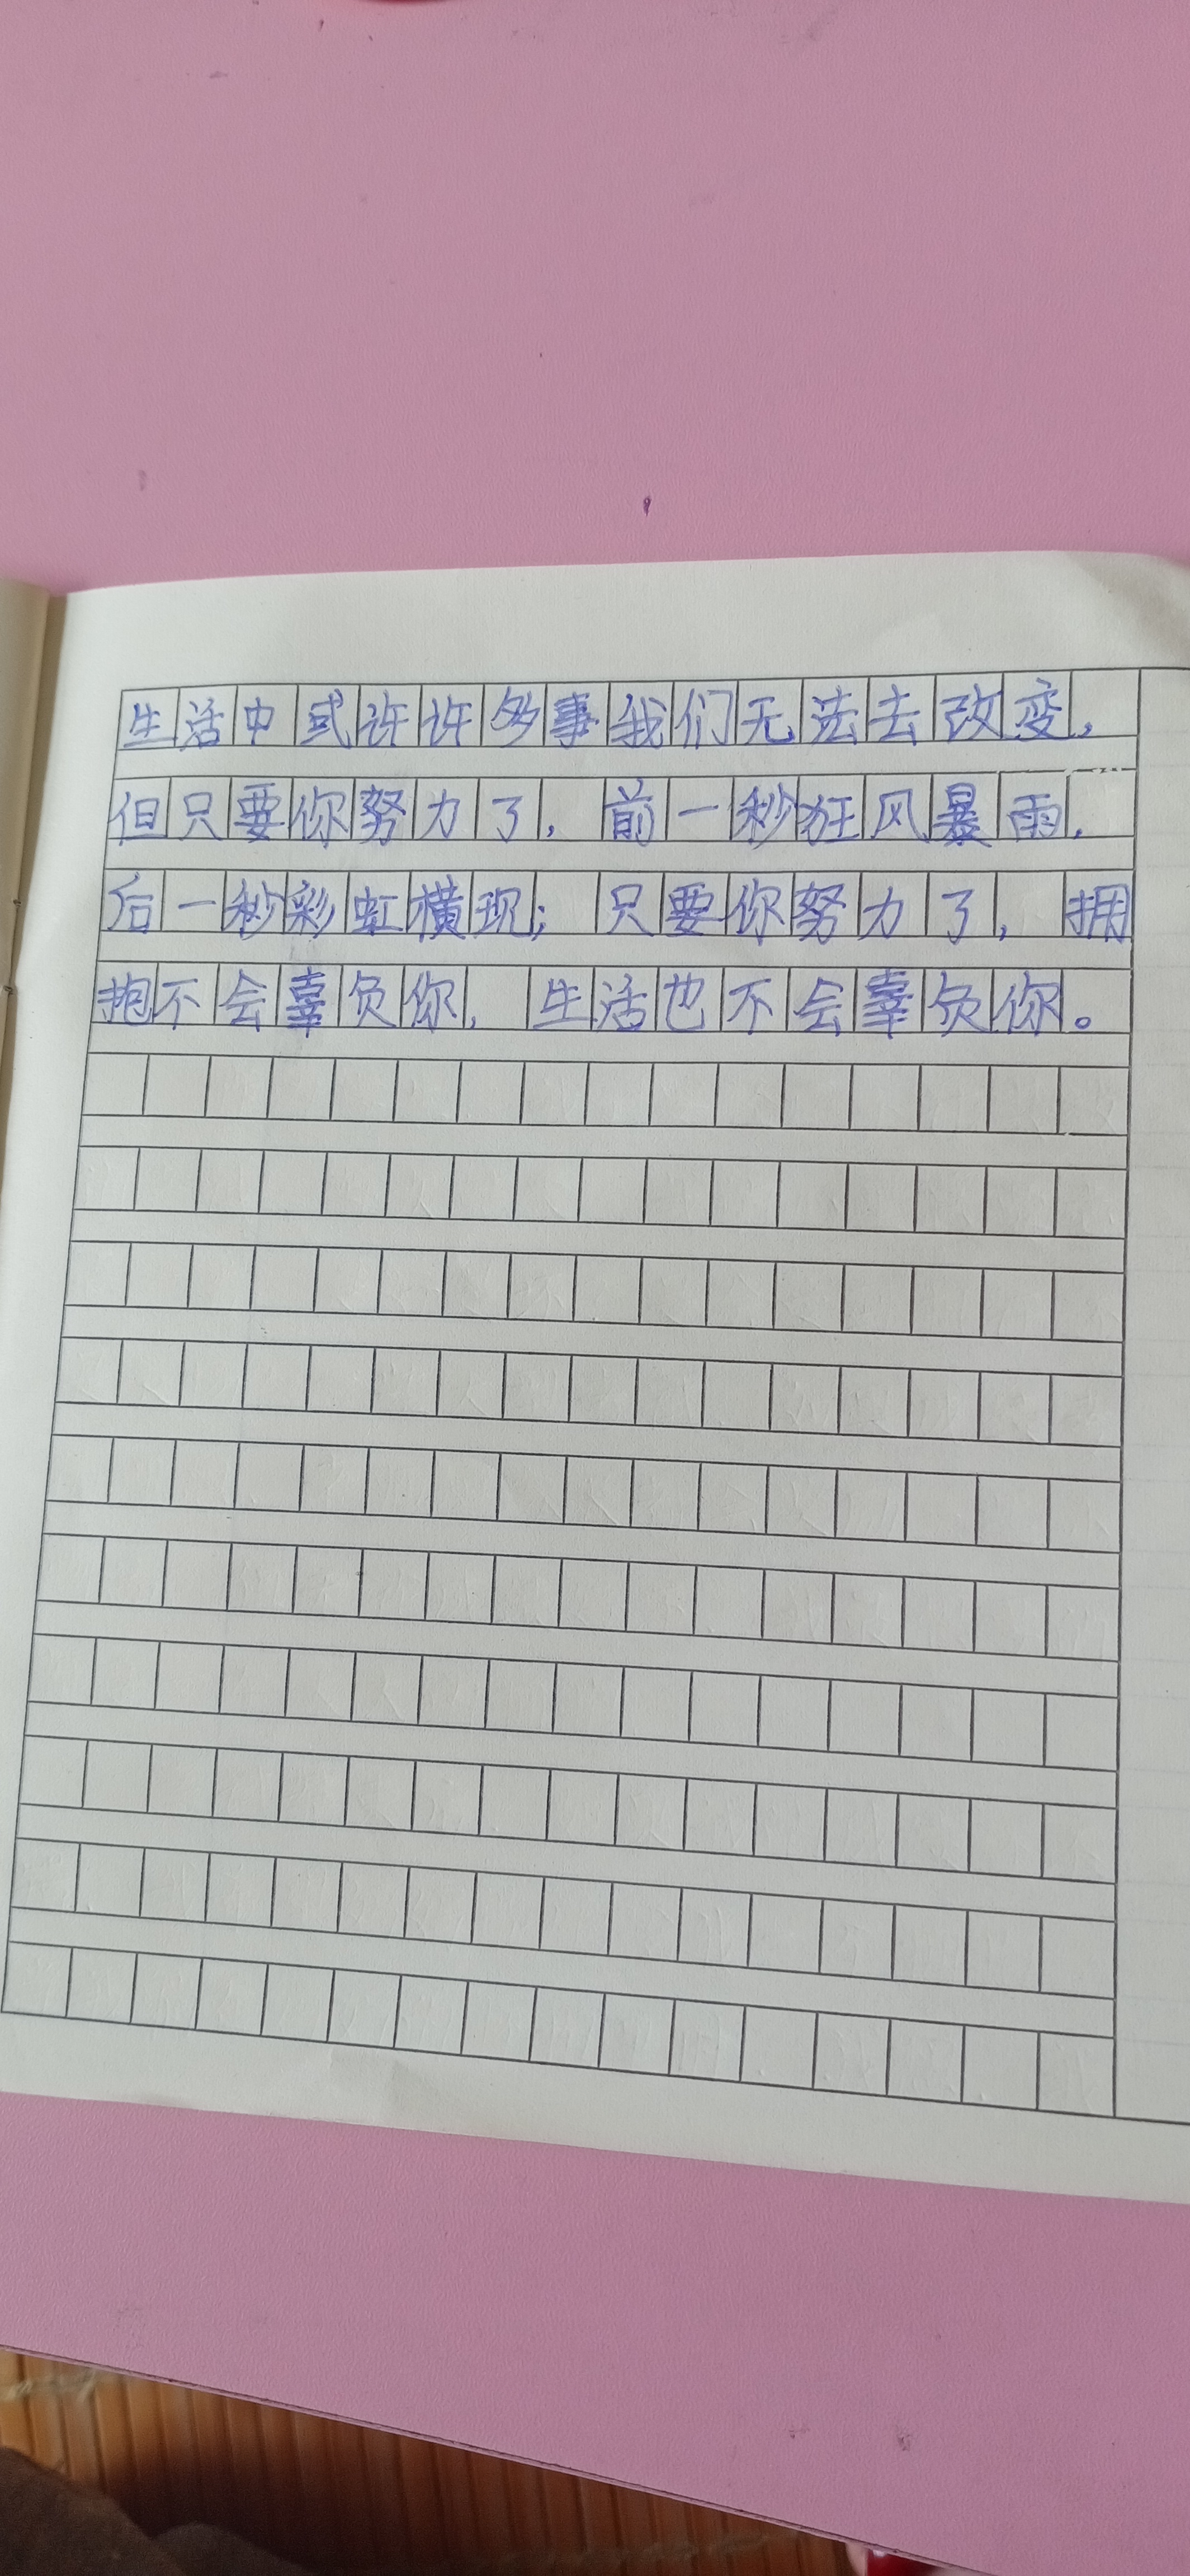 生活中或许许多事我们无法去改变,
但只要你努力了,前一秒狂风暴雨,
后一秒彩虹横现;只要你努力了,拥
抱不会辜负你,生活也不会辜负你。